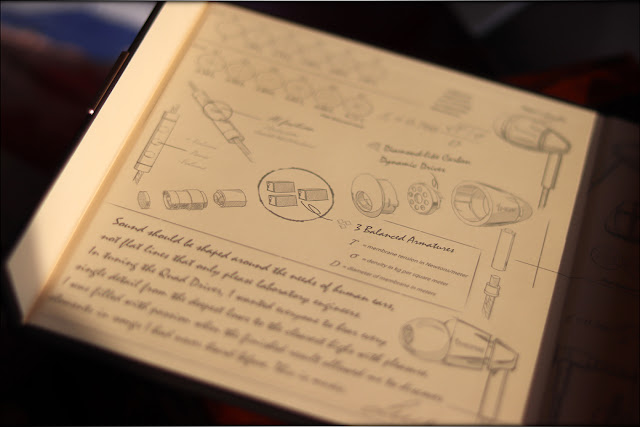 Diamond-like Carbon
Dynamic Driver
3 Balanced Armatures
T = membrane tension in Newtons/meter
σ = density in kg per square meter
D = diameter of membrane in meters
Sound should be shaped around the needs of human ears,
not flat lines that only please laboratory engineers.
In tuning the Quad Driver, I wanted everyone to hear every
single detail from the deepest lows to the clearest highs with pleasure.
I was filled with passion when the finished result allowed me to discover
elements in songs I had never heard before. This is music.